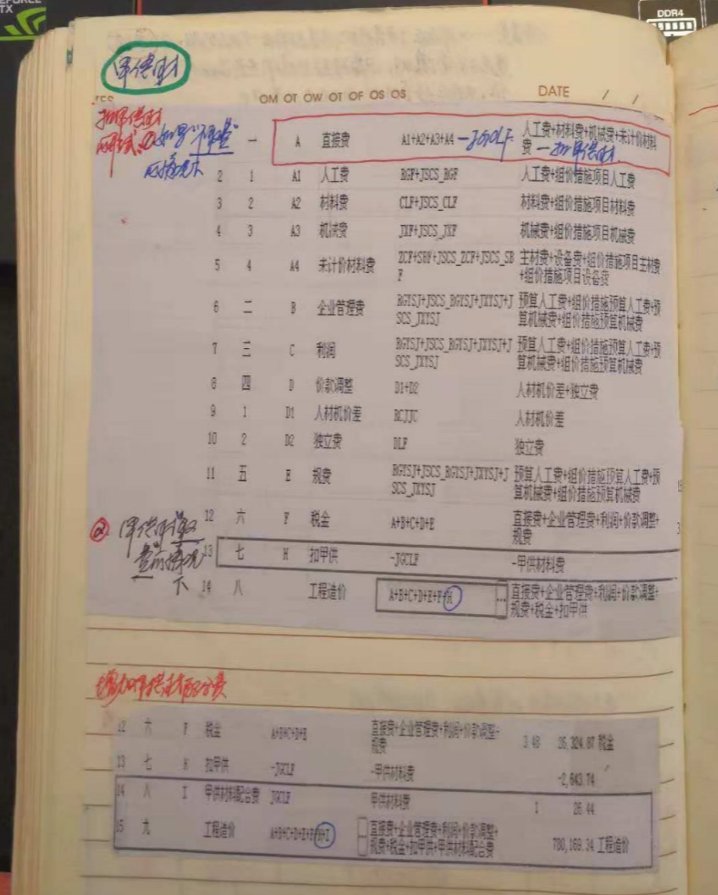 GEFORCE
TX
DDR4
甲供材
OM OT OW OT OF OS OS
DATE / /
扣甲供材
的形式.①如果"不取费"
的情况下
一 A 直接费 A1+A2+A3+A4 -JGCLF 人工费+材料费+机械费+未计价材料费 -扣甲供材
2 1 A1 人工费 RGF+JSCS_RGF 人工费+组价措施项目人工费
3 2 A2 材料费 CLF+JSCS_CLF 材料费+组价措施项目材料费
4 3 A3 机械费 JXF+JSCS_JXF 机械费+组价措施项目机械费
5 4 A4 未计价材料费 ZCF+SBF+JSCS_ZCF+JSCS_SBF 主材费+设备费+组价措施项目主材费+组价措施项目设备费
6 二 B 企业管理费 RGYSJ+JSCS_RGYSJ+JXYSJ+JSCS_JXYSJ 预算人工费+组价措施预算人工费+预算机械费+组价措施预算机械费
7 三 C 利润 RGYSJ+JSCS_RGYSJ+JXYSJ+JSCS_JXYSJ 预算人工费+组价措施预算人工费+预算机械费+组价措施预算机械费
8 四 D 价款调整 D1+D2 人材机价差+独立费
9 1 D1 人材机价差 RCJJC 人材机价差
10 2 D2 独立费 DLF 独立费
11 五 E 规费 RGYSJ+JSCS_RGYSJ+JXYSJ+JSCS_JXYSJ 预算人工费+组价措施预算人工费+预算机械费+组价措施预算机械费
12 六 F 税金 A+B+C+D+E 直接费+企业管理费+利润+价款调整+规费
② 甲供材取
费的情况
下
13 七 H 扣甲供 -JGCLF -甲供材料费
14 八 工程造价 A+B+C+D+E+F+H ... 直接费+企业管理费+利润+价款调整+规费+税金+扣甲供
增加甲供材配合费
12 六 F 税金 A+B+C+D+E 直接费+企业管理费+利润+价款调整+规费 3.48 26,324.87 税金
13 七 H 扣甲供 -JGCLF -甲供材料费 -2,643.74
14 八 I 甲供材料配合费 JGCLF 甲供材料费 1 26.44
15 九 工程造价 A+B+C+D+E+F+H+I 直接费+企业管理费+利润+价款调整+规费+税金+扣甲供+甲供材料配合费 780,169.34 工程造价